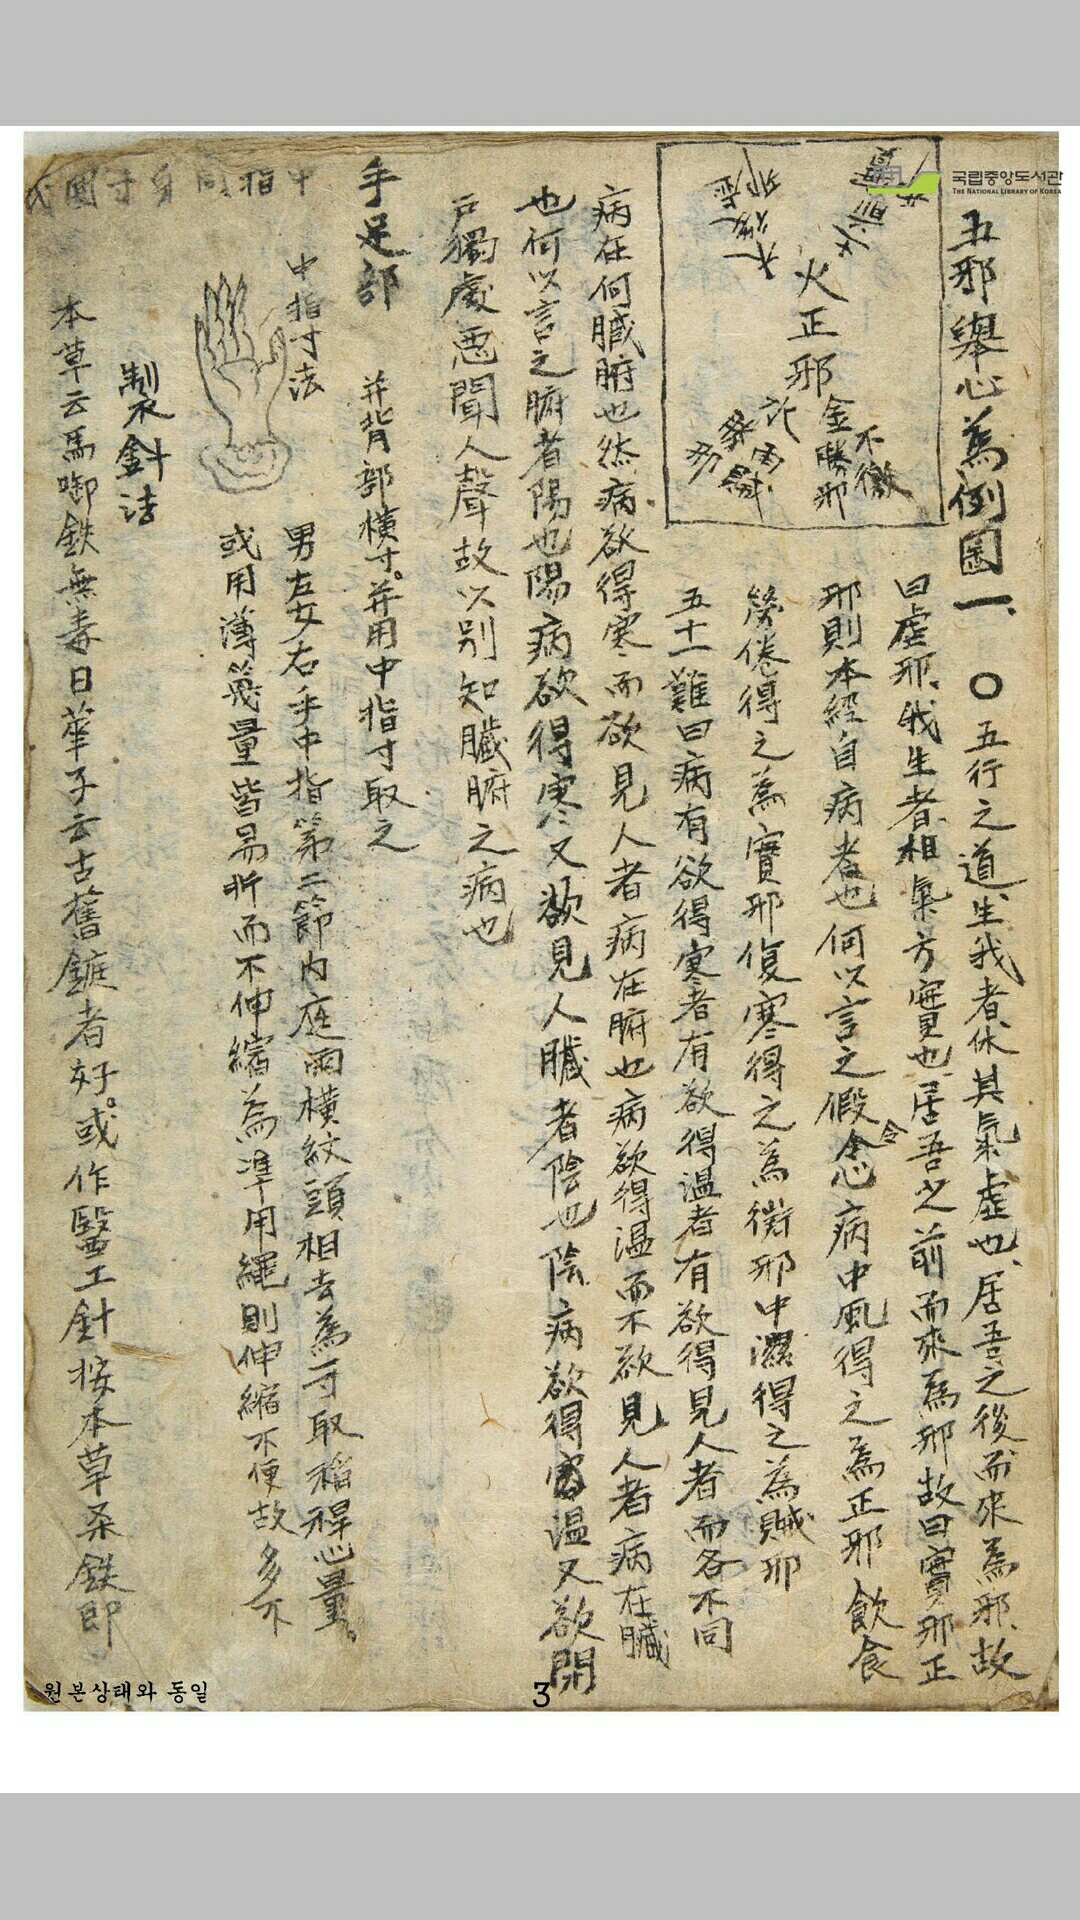 국립중앙도서관
THE NATIONAL LIBRARY OF KOREA
五邪舉心為例圖一、○五行之道、生我者休其氣虛也、居吾之後而來為邪、故
曰虛邪、我生者、相氣方實也、居吾之前而來為邪故曰實邪正
邪則本經自病者也何以言之假令心病中風得之為正邪飲食
勞倦得之為實邪復寒得之為微邪中濕得之為賊邪
火正邪
金勝邪
不微
五十一難曰病有欲得寒者有欲得溫者有欲得見人者而各不同
病在何臟腑也然病欲得寒而欲見人者病在腑也病欲得溫而不欲見人者病在臟
也何以言之腑者陽也陽病欲得寒又欲見人臟者陰也陰病欲得溫又欲閉
戶獨處惡聞人聲故以別知臟腑之病也
手足部 并背部橫寸并用中指寸取之
中指寸法
男左女右手中指第二節內庭兩橫紋頭相去為一寸取稻稈心量。
或用薄篾量皆易折而不伸縮為準用繩則伸縮不便故多不
中指同身寸圖
製針法
本草云馬啣鉄無毒日華子云古舊鋌者好。或作醫工針按本草柔鉄即
원본상태와 동일
3